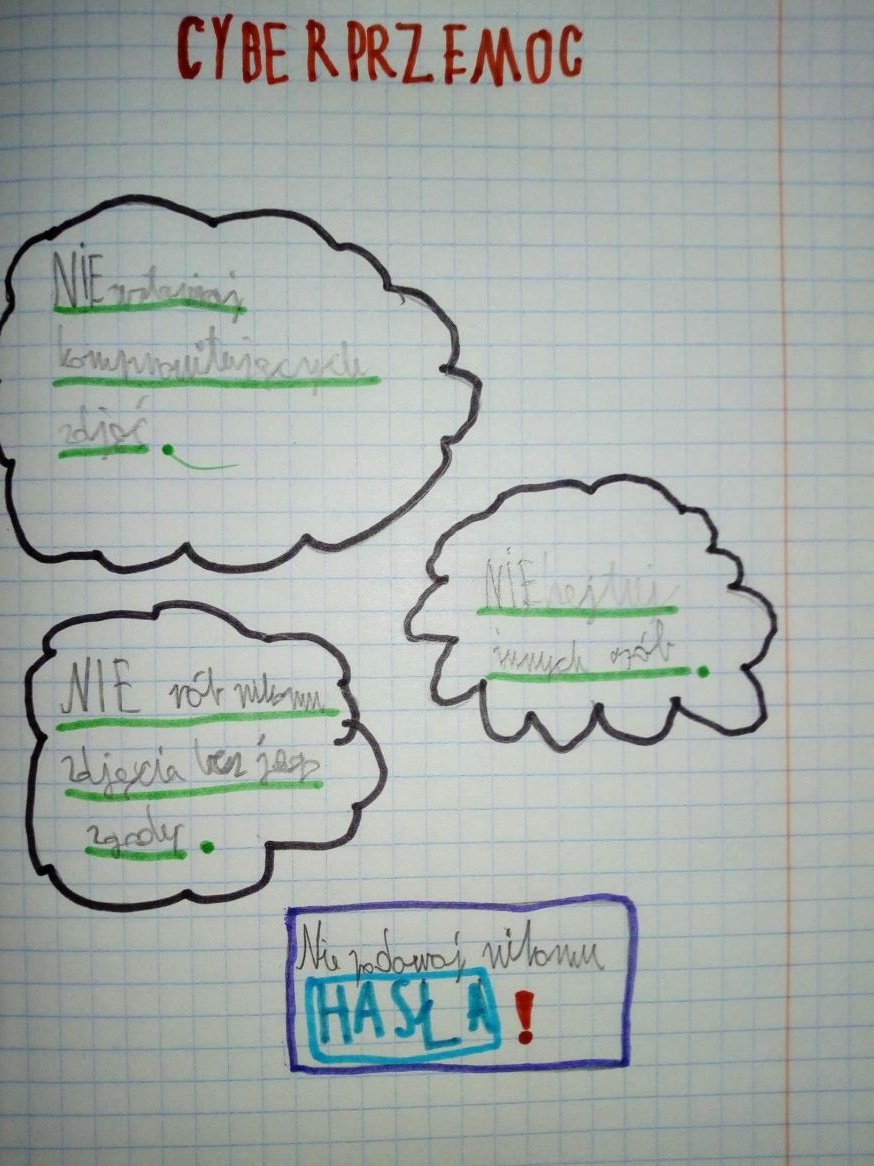 CYBERPRZEMOC
NIE
kompromitujących
zdjęć.
NIE hejtuj
innych osób.
NIE rób nikomu
zdjęcia bez jego
zgody.
Nie podawaj nikomu
HASŁA!